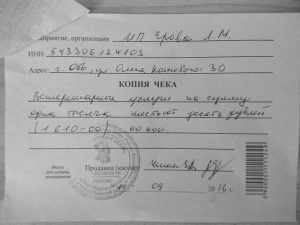 приятие, организация ИП Ерова Л.М.
ИНН 543306124103
Адрес г. Обь, ул Олега Кошевого 30
КОПИЯ ЧЕКА
Ветеринарные услуги на сумму
одна тысяча шестьсот десять рублей
(1 610-00) 00 коп
Место для штампа
Продавец (кассир)
09 2016 г.